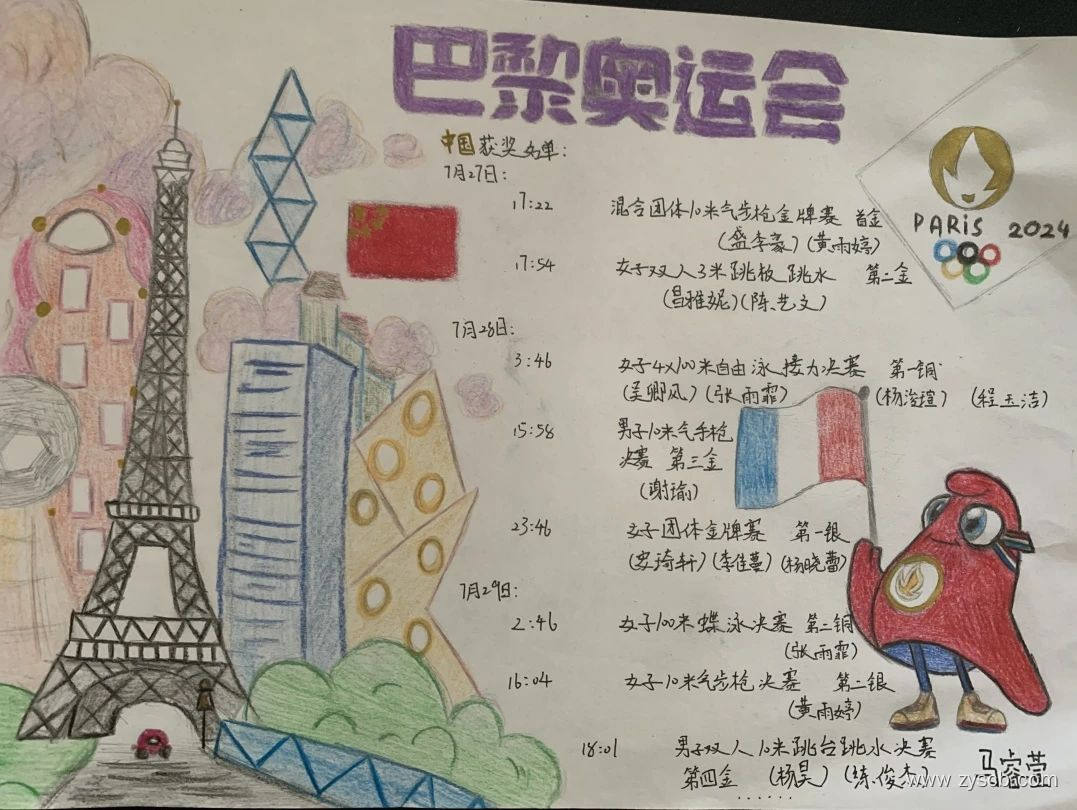 巴黎奥运会
中国获奖名单:
7月27日:
17:22 混合团体10米气步枪金牌赛 首金
(盛李豪)(黄雨婷)
17:54 女子双人3米跳板跳水 第二金
(昌雅妮)(陈艺文)
7月28日:
3:46 女子4×100米自由泳接力决赛 第一铜
(吴卿风)(张雨霏)(杨浚瑄)(程玉洁)
15:58 男子10米气手枪
决赛 第三金
(谢瑜)
23:46 女子团体金牌赛 第一银
(安琦轩)(李佳蔓)(杨晓蕾)
7月29日:
2:46 女子100米蝶泳决赛 第二铜
(张雨霏)
16:04 女子10米气步枪决赛 第二银
(黄雨婷)
18:01 男子双人10米跳台跳水决赛
第四金 (杨昊)(练俊杰)
......
PARiS 2024
马睿萱
www.zysdb.com